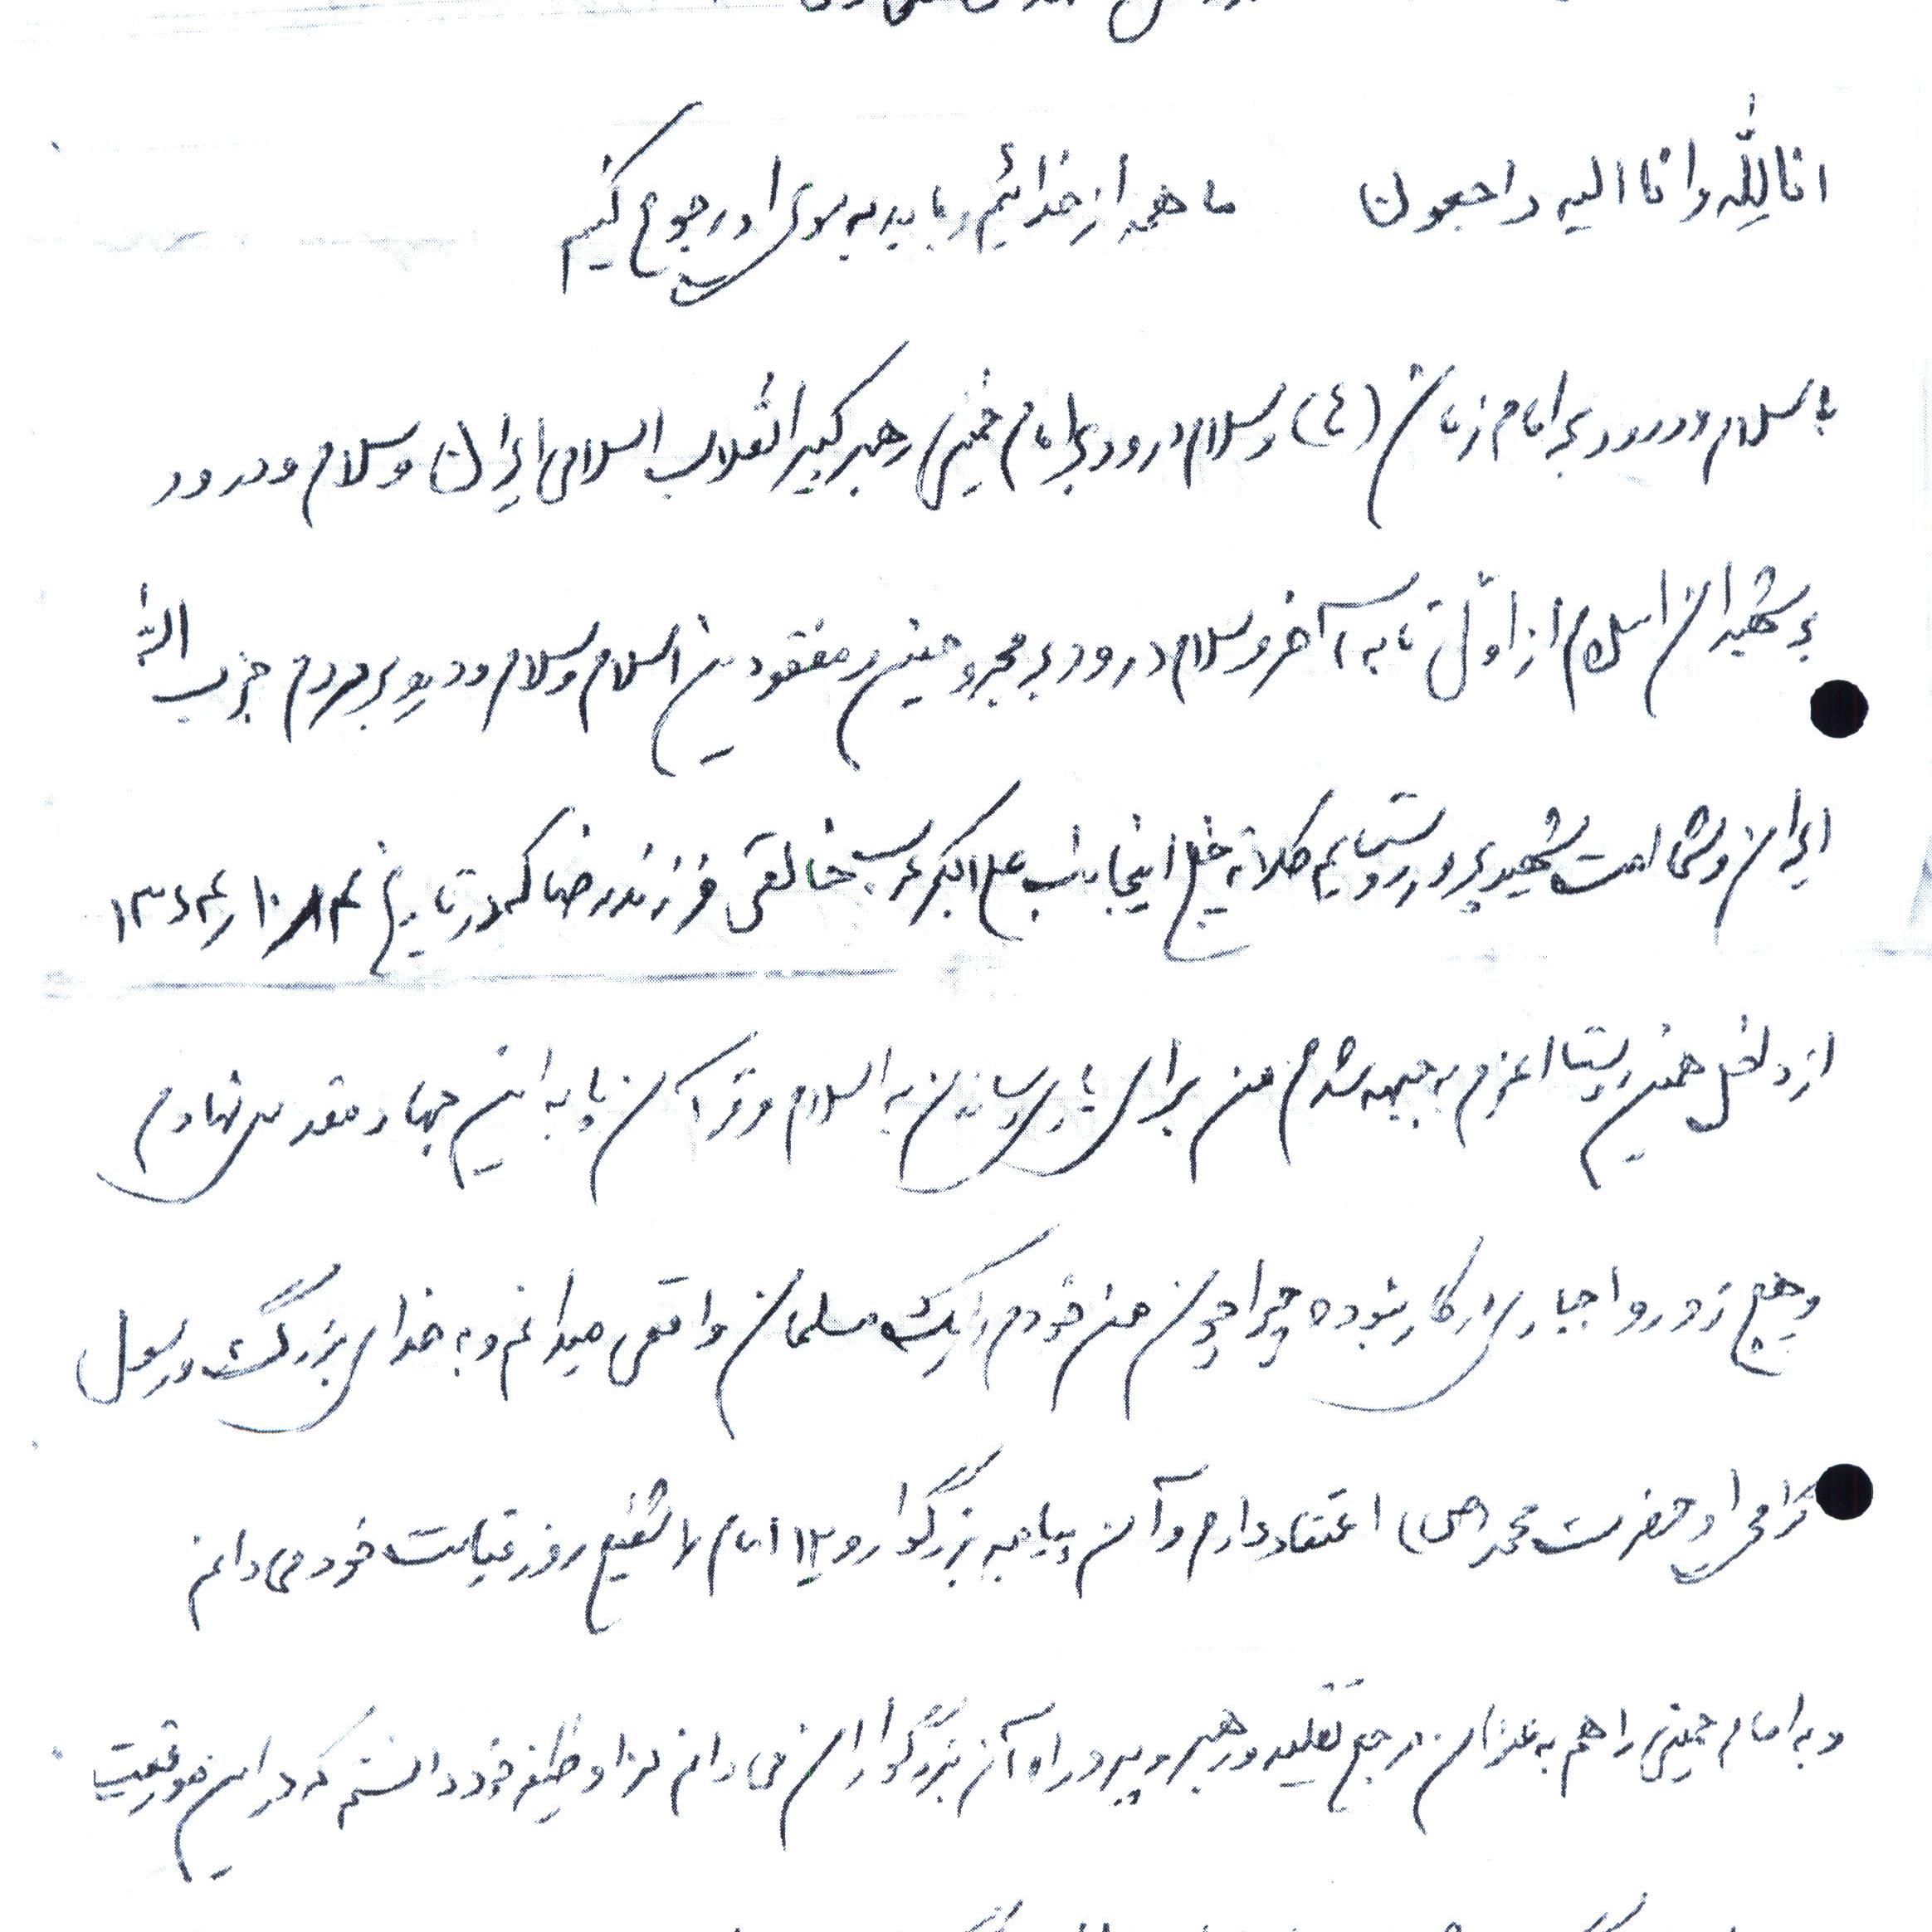 انا لِلّه و انا الیه راجعون ما همه از خدائیم و باید به سوی او رجوع کنیم
با سلام و درود بر امام زمان (ع) و سلام درود بر امام خمینی رهبر کبیر انقلاب اسلامی ایران و سلام و درود
بر شهیدان اسلام از اوّل تا به آخر و سلام درود بر مجروحین و مفقودین اسلام و سلام و درود بر مردم حزب الله
ایران و امت شهید پرور روستایم کلاته خیج اینجانب علی اکبر عرب خالقی فرزند رضا که در تاریخ
از داخل همین روستا اعزام به جبهه شدم من برای یاری رسانیدن به اسلام و قرآن پا به این جهاد مقدس نهادم
و هیچ زور و اجباری در کار نبوده چرا چون من خودم را یک مسلمان واقعی میدانم و به خدای بزرگ و رسول
گرامی او حضرت محمد (ص) اعتقاد دارم و آن پیامبر بزرگوار و ۱۲ امام را شفیع روز قیامت خود می دانم
و به امام خمینی را هم به عنوان مرجع تقلید و رهبر و پیرو راه آن بزرگواران می دانم لذا وظیفه خود دانستم که در این موقعیت